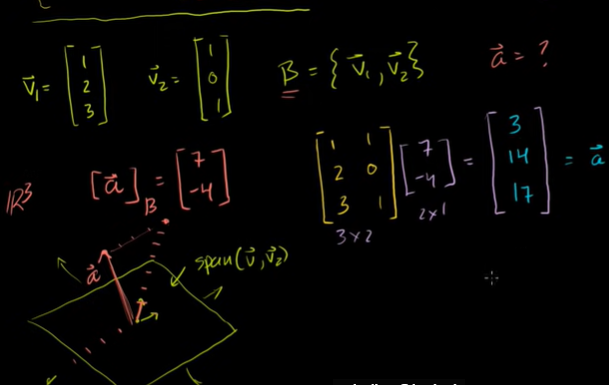 v⃗₁ = [1 2 3] v⃗₂ = [1 0 1] B = {v⃗₁, v⃗₂} a⃗ = ?
ℝ³ [a⃗]_B = [7 -4]
[1 1; 2 0; 3 1] [7 -4] = [3 14 17] = a⃗
3×2 2×1
span(v⃗, v⃗₂)
a⃗